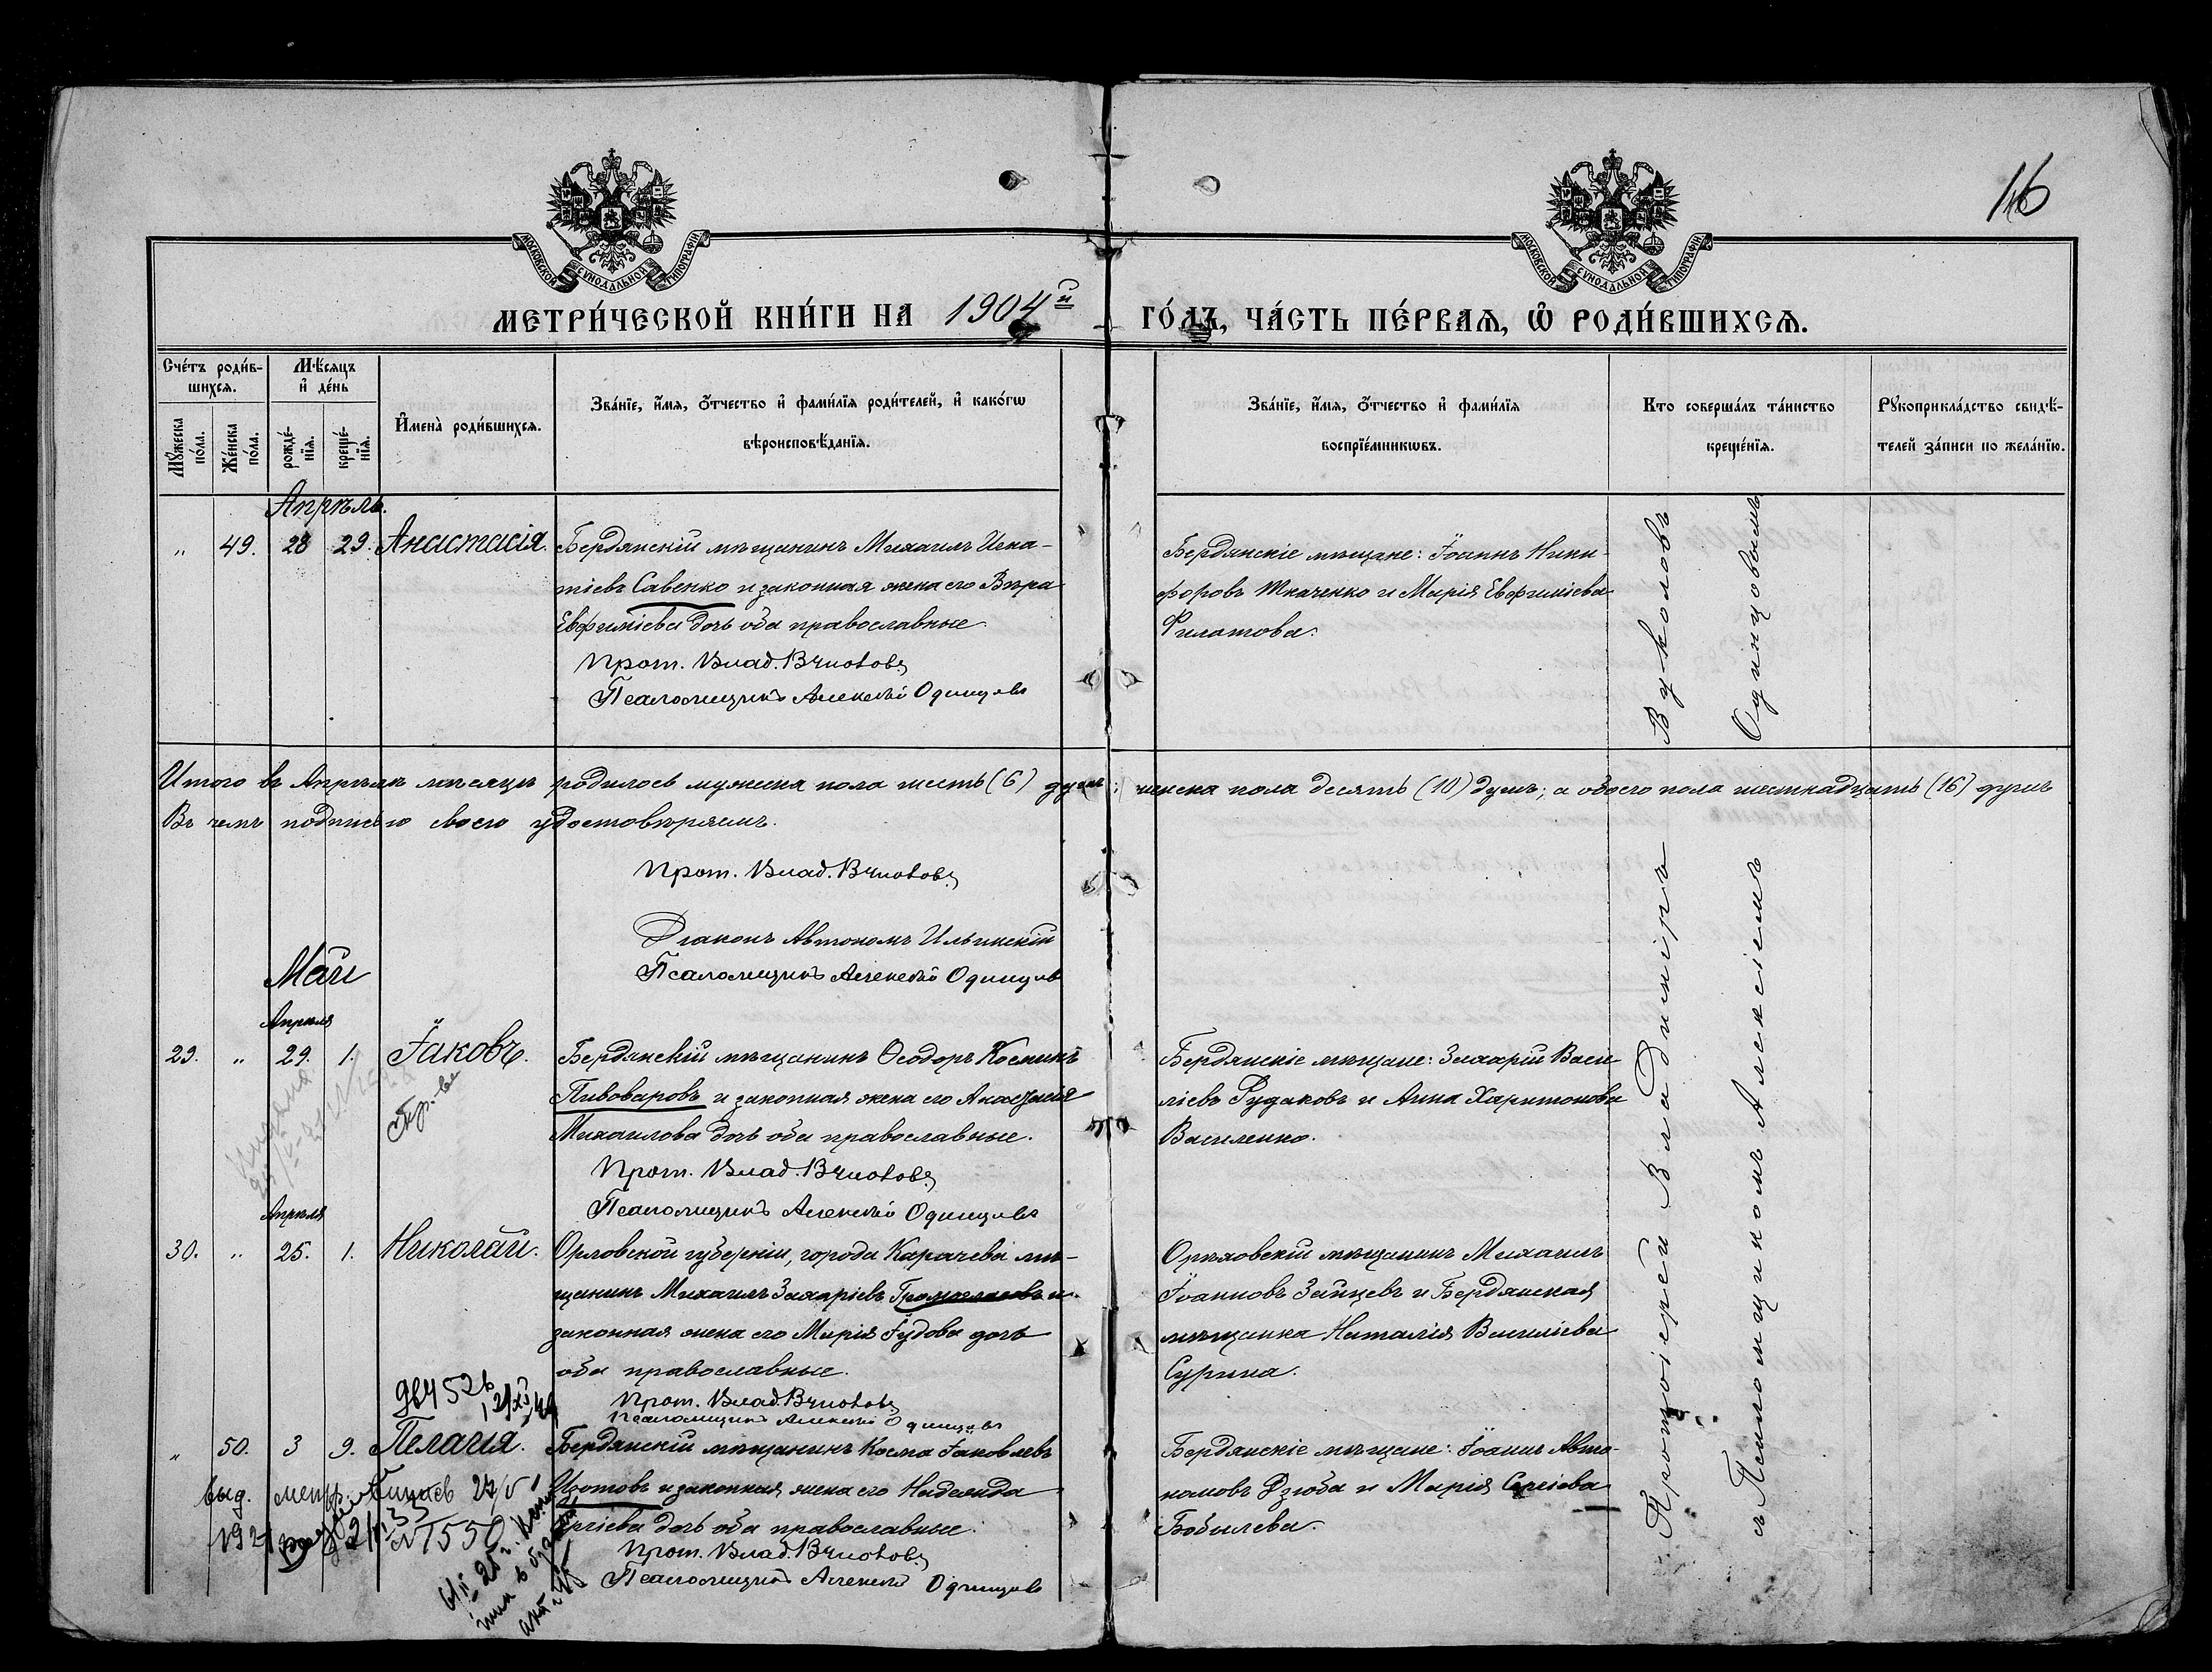 16
МОСКОВСКОЙ СУНОДАЛЬНОЙ ТИПОГРАФІИ
МОСКОВСКОЙ СУНОДАЛЬНОЙ ТИПОГРАФІИ
МЕТРИ́ЧЕСКОЙ КНИ́ГИ НА 1904й ГО́ДЪ, ЧА́СТЬ ПЕ́РВАѦ, Ѡ РОДИ́ВШИХСѦ.
Сче́тъ роди́в-
шихсѧ.
Мѣ́сѧцъ
и҆ де́нь
Мꙋ́жеска
по́ла.
Же́нска
по́ла.
рожде́-
нїѧ.
креще́-
нїѧ.
И҆мена̀ роди́вшихсѧ.
Зва́нїе, и҆́мѧ, ѻ҆́тчество и҆ фами́лїѧ роди́телей, и҆ како́гѡ
вѣроисповѣ́данїѧ.
Зва́нїе, и҆́мѧ, ѻ҆́тчество и҆ фами́лїѧ
воспрїе́мникѡвъ.
Кто соверша́лъ та́инство
креще́нїѧ.
Рꙋкоприкла́дство свидѣ́-
телей за́писи по жела́нїю.
Апрѣль.
„ 49. 28 29. Анастасія. Бердянскій мѣщанинъ Михаилъ Игна-
тіевъ Савенко и законная жена его Вѣра
Евфиміева дочь оба православные.
Прот. Влад. Вуколовъ
Псаломщикъ Алексѣй Одинцовъ
Бердянскіе мѣщане: Іоаннъ Ники-
форовъ Ткаченко и Марія Евфиміева
Филатова.
Итого въ Апрѣлѣ мѣсяцѣ родилось мужеска пола шесть (6) душъ; женска пола десять (10) душъ; а обоего пола шестнадцать (16) душъ
Въ чемъ подписью своею удостовѣряемъ.
Прот. Влад. Вуколовъ
Діаконъ Автономъ Ильинскій
Псаломщикъ Алексѣй Одинцовъ
Май
Апрѣля
29. „ 29. 1. Іаковъ. Бердянскій мѣщанинъ Ѳеодоръ Косминъ
Пивоваровъ и законная жена его Анастасія
Михаилова дочь оба православные.
Прот. Влад. Вуколовъ
Псаломщикъ Алексѣй Одинцовъ
Бердянскіе мѣщане: Захарій Васи-
ліевъ Рудаковъ и Анна Харитонова
Василенко.
Апрѣля
30. „ 25. 1. Николай. Орловской губерніи, города Карачева мѣ-
щанинъ Михаилъ Захаріевъ Громогласовъ и
законная жена его Марія Іудова дочь
оба православные.
Прот. Влад. Вуколовъ
Псаломщикъ Алексѣй Одинцовъ
Орѣховскій мѣщанинъ Михаилъ
Іоанновъ Зайцевъ и Бердянская
мѣщанка Наталія Василіева
Сурина.
„ 50. 3 9. Пелагія. Бердянскій мѣщанинъ Косма Іаковлевъ
Изотовъ и законная жена его Надежда
Сергіева дочь оба православные.
Прот. Влад. Вуколовъ
Псаломщикъ Алексѣй Одинцовъ
Бердянскіе мѣщане: Іоаннъ Авто-
номовъ Дзюба и Марія Сергіева
Бобылева.
выд. метр.
N 1550
Протоіерей Владиміръ Вуколовъ
съ Псаломщикомъ Алексіемъ Одинцовымъ